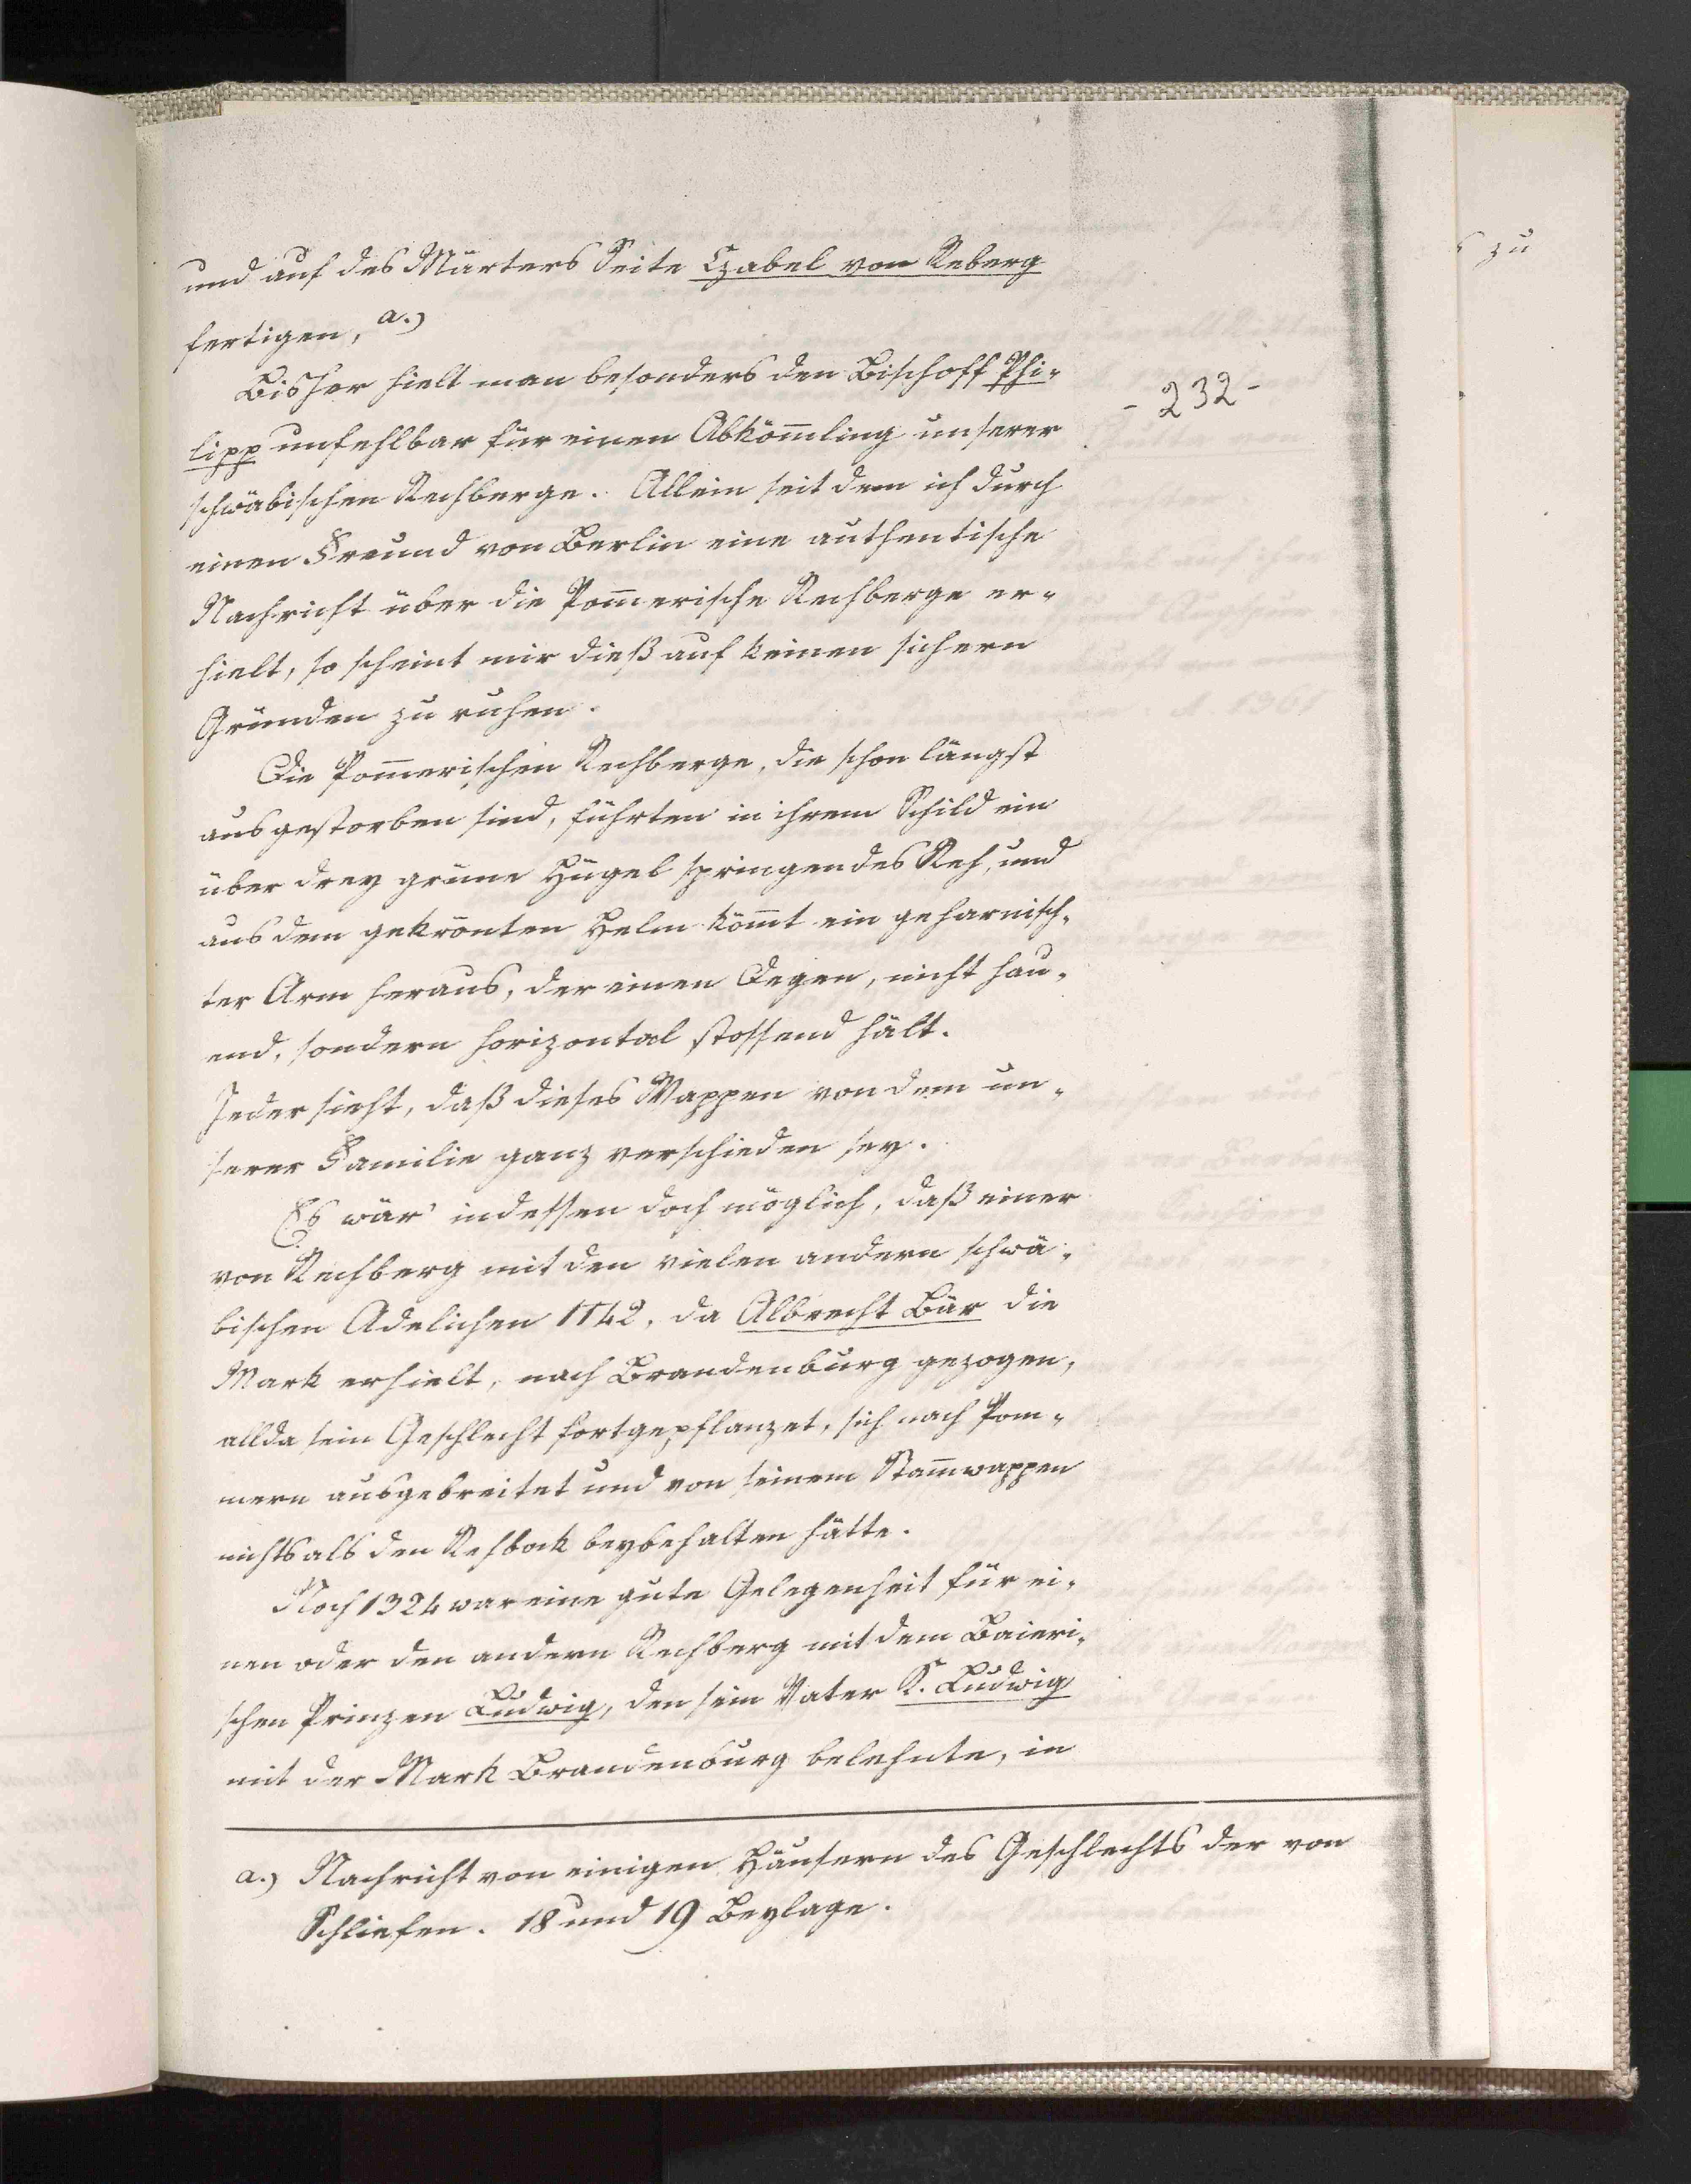 und auf des Märters Seite Czabel von Reberg
fertigen, a.)
Bisher hielt man besonders den Bischoff Phi-
lipp unfehlbar für einen Abkömling unserer
schwäbischen Rechberge. Allein seit dem ich durch
einen Freund von Berlin eine authentische
Nachricht über die Pommerische Rechberge er-
hielt, so scheint mir dieß auf keinen sichern
Gründen zu ruhen.
- 232 -
Die Pommerischen Rechberge, die schon längst
ausgestorben sind, führten in ihrem Schild ein
über drey grüne Hügel springendes Reh, und
aus dem gekrönten Helm kömt ein geharnisch-
ter Arm heraus, der einen Degen, nicht hau-
end, sondern horizontal stossend hält.
Jeder sieht, daß dieses Wappen von dem un-
serer Familie ganz verschieden sey.
Es wär' indessen doch möglich, daß einer
von Rechberg mit den vielen andern schwä-
bischen Adelichen 1142, da Albrecht Bär die
Mark erhielt, nach Brandenburg gezogen,
allda sein Geschlecht fortgepflanzet, sich nach Pom-
mern ausgebreitet und von seinem Stammwappen
nichts als den Rehbock beybehalten hätte.
Noch 1324 war eine gute Gelegenheit für ei-
nen oder den andern Rechberg mit dem Baieri-
schen Prinzen Ludwig, den sein Vater K. Ludwig
mit der Mark Brandenburg belehnte, in
a.) Nachricht von einigen Häusern des Geschlechts der von
Schliefen. 18 und 19 Beylage.
zu